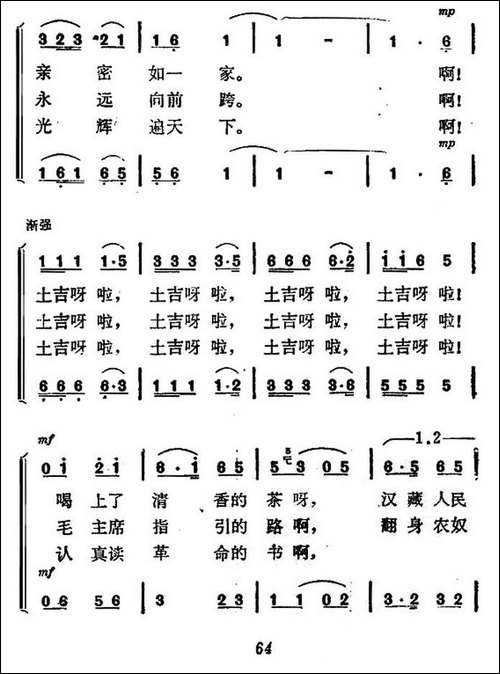 mp
3 2 3 2 1 | 1 6 1 | 1 - | 1 · 6
亲 密 如一 家。 啊!
永 远 向前 跨。 啊!
光 辉 遍天 下。 啊!
mp
1 6 1 6 5 | 5 6 1 | 1 - | 1 · 6
渐强
1 1 1 1·5 | 3 3 3 3·5 | 6 6 6 6·2 | 1 1 6 5
土吉呀 啦, 土吉呀 啦, 土吉呀 啦, 土吉呀 啦!
土吉呀 啦, 土吉呀 啦, 土吉呀 啦, 土吉呀 啦!
土吉呀 啦, 土吉呀 啦, 土吉呀 啦, 土吉呀 啦!
6 6 6 6·3 | 1 1 1 1·2 | 3 3 3 3·6 | 5 5 5 5
mf
1.2
0 1 2 1 | 6·1 6 5 | 5 3 0 5 | 6·5 6 5
喝 上了 清 香的 茶呀, 汉 藏人民
毛 主席 指 引的 路啊, 翻 身农奴
认 真读 革 命的 书啊,
mf
0 6 5 6 | 3 2 3 | 1 1 0 2 | 3·2 3 2
64